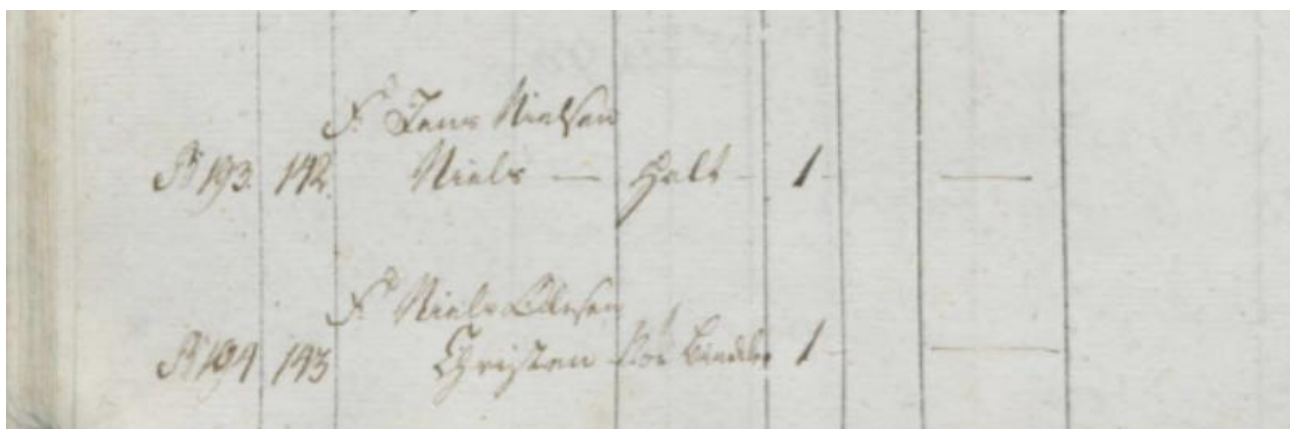 F. Jens Nielsen
193. 142. Niels — Halt - 1 - —
F. Niels Olesen
194 143 Christen Nør 1 - —